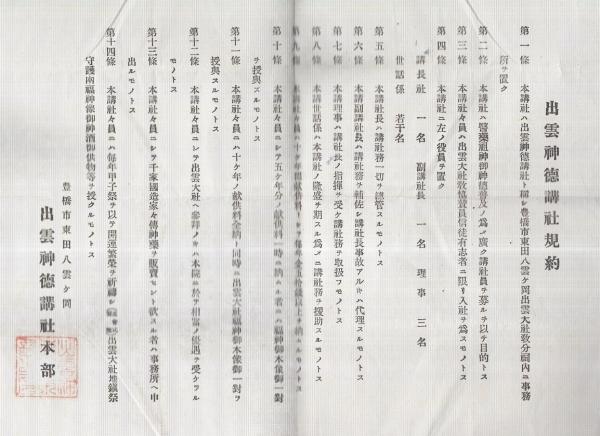 出雲神德講社規約
第一條 本講社ハ出雲神德講社ト稱シ豊橋市東田八雲ケ岡出雲大社敎分祠內ニ事務
所ヲ置ク
第二條 本講社ハ醫藥祖神御神德普及ノ爲メ廣ク講社員ヲ募ルヲ以テ目的トス
第三條 本講社々員ハ出雲大社敎協賛員信徒有志者ニ限リ入社ヲ爲スモノトス
第四條 本講社ニ左ノ役員ヲ置ク
講社長 一名 副講社長 一名 理事 三名
世話係 若干名
第五條 本講社長ハ講社務一切ヲ總管スルモノトス
第六條 本副講社長ハ講社務ヲ補佐シ講社長事故アルトキハ代理スルモノトス
第七條 本理事ハ講社長ノ指揮ヲ受ケ講社務ヲ取扱フモノトス
第八條 本講世話係ハ本講社ノ隆盛ヲ期スル爲メニ講社務ヲ援助スルモノトス
第九條 本講社々員ハ十ケ年間獻供料トシテ每年金五拾錢以上ヲ納ムルモノトス
第十條 本講社々員ニシテ五ケ年分ノ獻供料一時ニ納ムル者ニハ福神御木像御一對
ヲ授與スルモノトス
第十一條 本講社々員ニハ十ケ年ノ獻供料金納ト同時ニ出雲大社福神御木像御一對ヲ
授與スルモノトス
第十二條 本講社々員ニシテ出雲大社ヘ參拜ノトキハ本院ニ於テ相當ノ優遇ヲ受クヘキ
モノトス
第十三條 本講社々員ニシテ千家國造家々傳神藥ヲ販賣セント欲スル者ハ事務所ヘ申
出ルモノトス
第十四條 本講社々員ニハ每年甲子祭ヲ以テ開運繁榮ヲ祈禱シ 出雲大社地鎭祭
守護兩福神 御神酒御供物等ヲ授クルモノトス
豊橋市東田八雲ケ岡
出雲神德講社本部